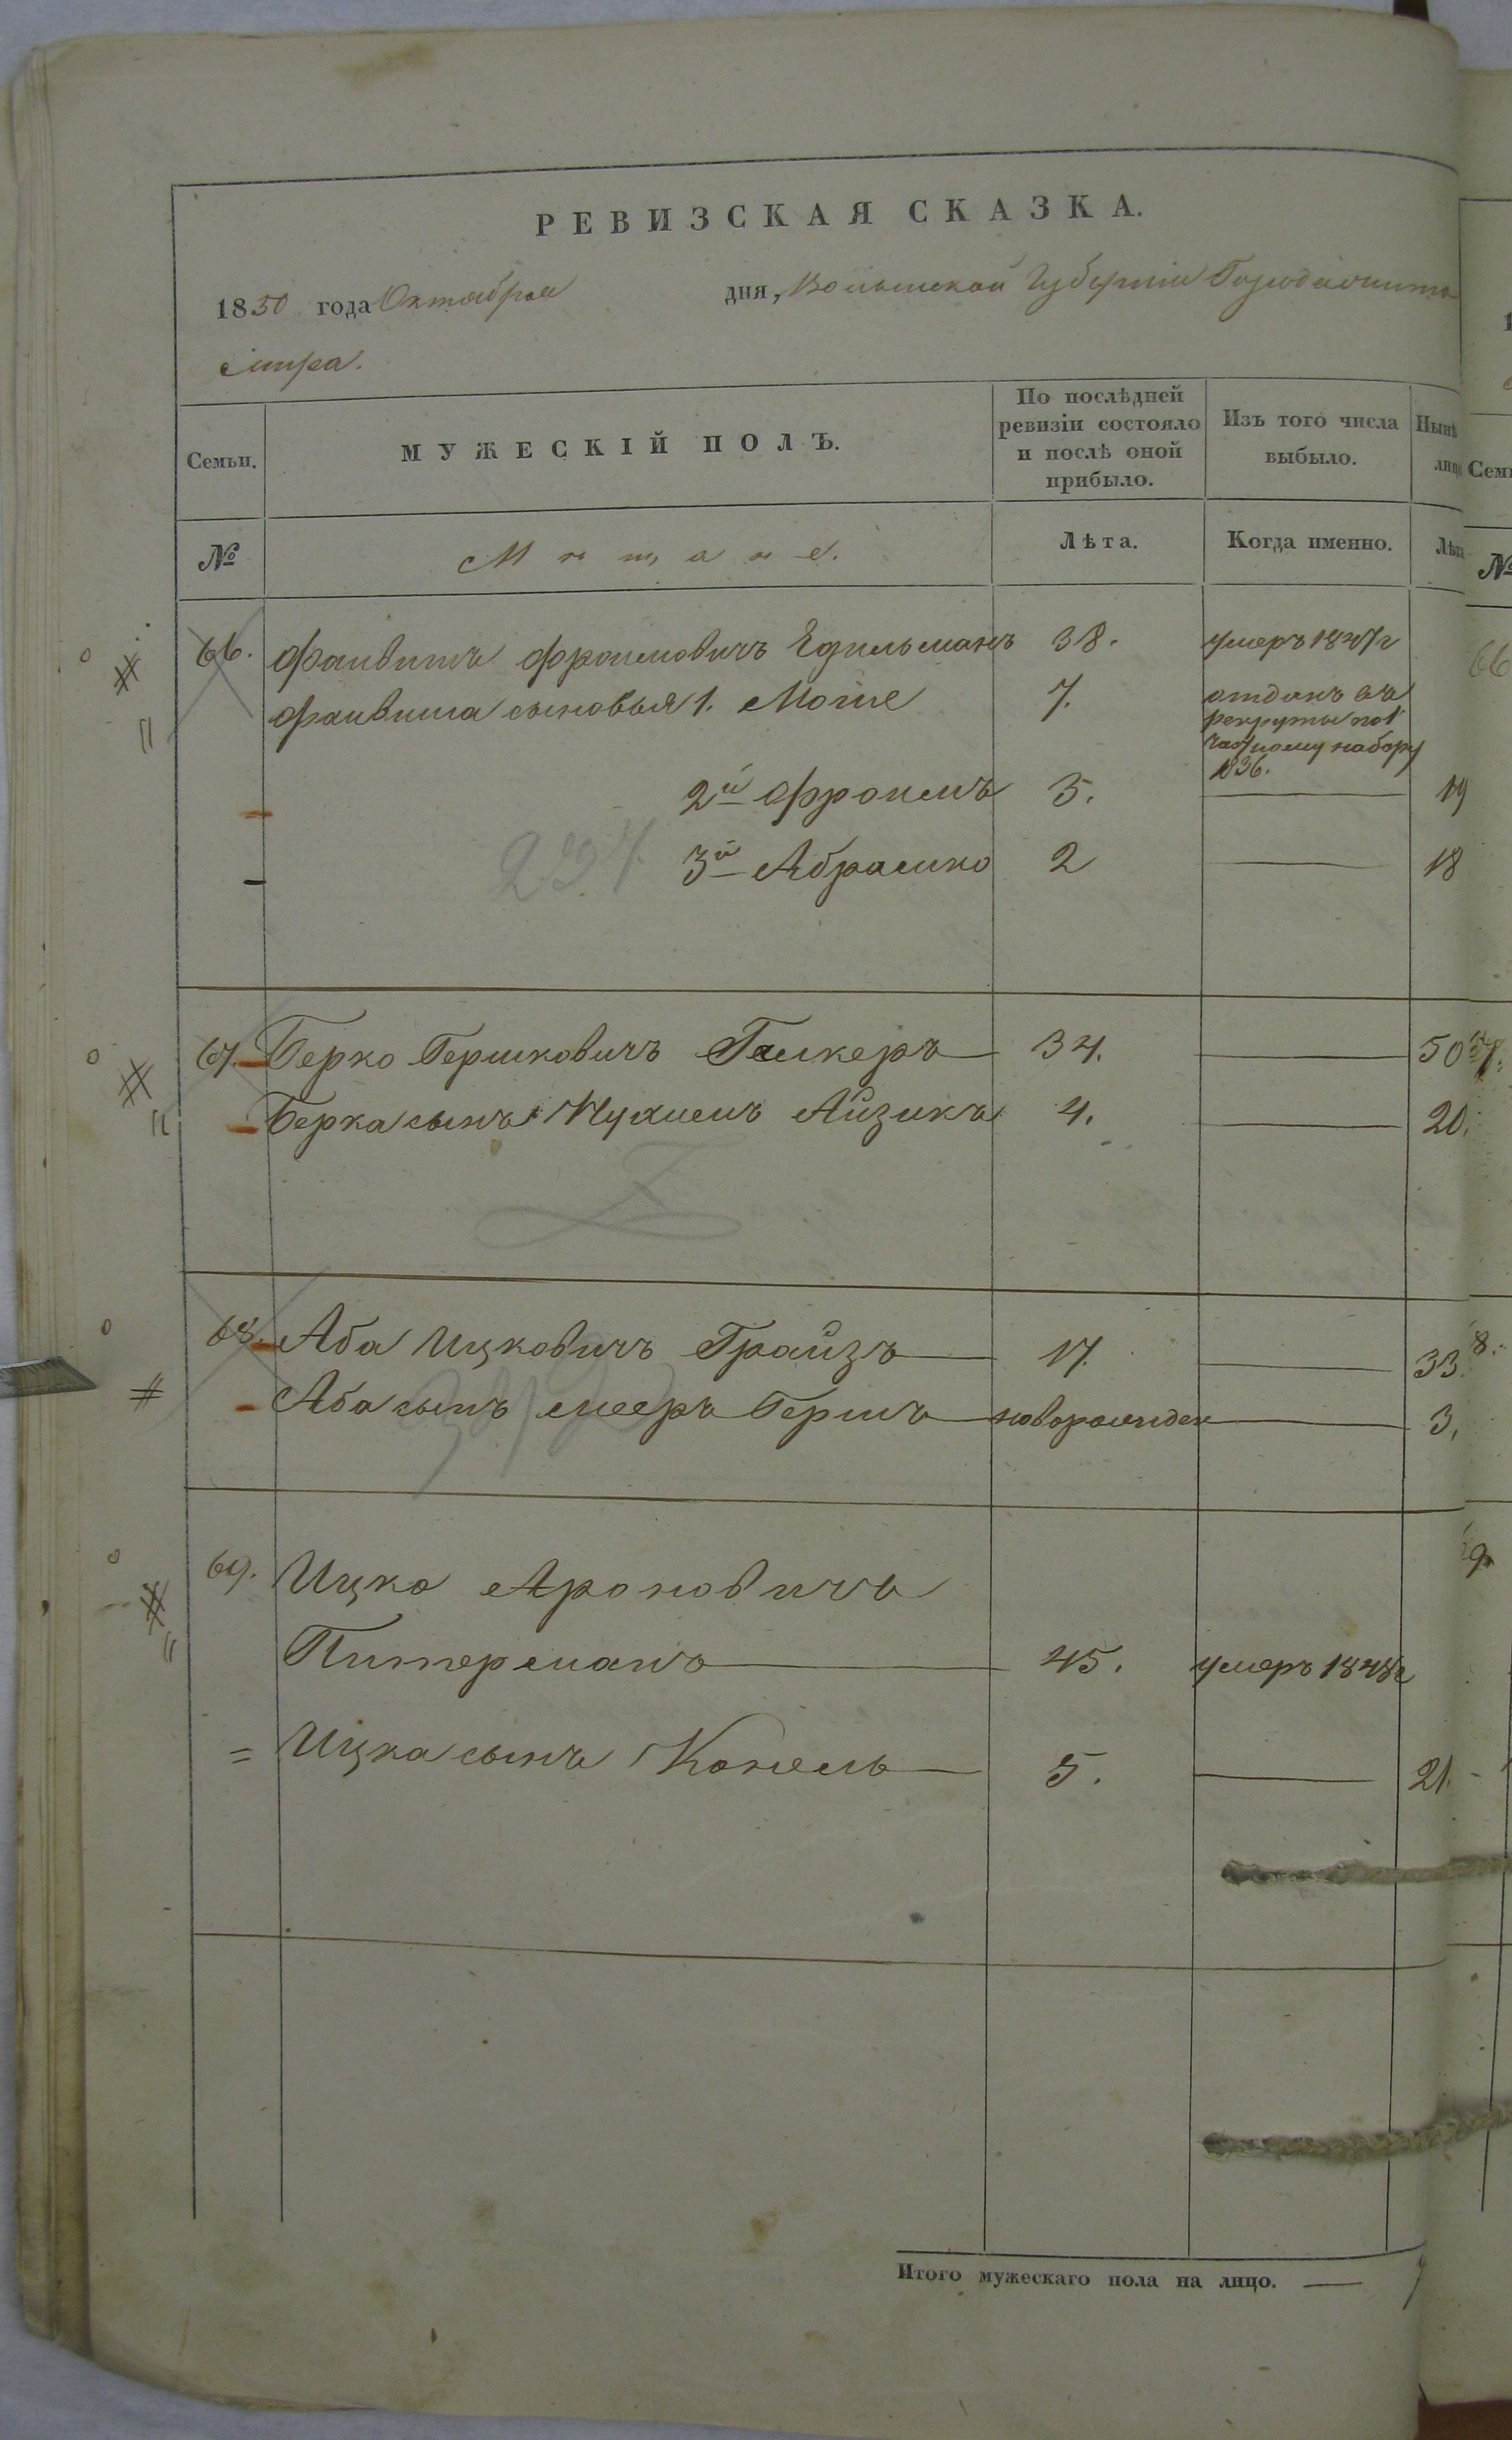 РЕВИЗСКАЯ СКАЗКА.
1850 года Октября дня, Волынской Губернии
Семьи.
МУЖЕСКІЙ ПОЛЪ.
По послѣдней ревизіи состояло и послѣ оной прибыло.
Изъ того числа выбыло.
Нынѣ
№
Мѣщане.
Лѣта.
Когда именно.
66. Фаивишъ Фроимовичъ Едильманъ 38. умеръ 1847г
Фаивиша сыновья 1. Мошe 7. отданъ въ
рекруты по 1
частному набору
1836.
2й Фроимъ 3. 19
234. 3й Абрамко 2 18
67. Берко Гершковичъ 34. 50
Берка сынъ Нухимъ Айзикъ 4. 20.
68. Аба Ицковичъ Грайзъ 17. 33.
Аба сынъ Мееръ Гершъ новорожден 3,
69. Ицко Ароновичъ
Питерманъ 45. умеръ 1848г
Ицка сынъ 5. 21.
Итого мужескаго пола на лицо.